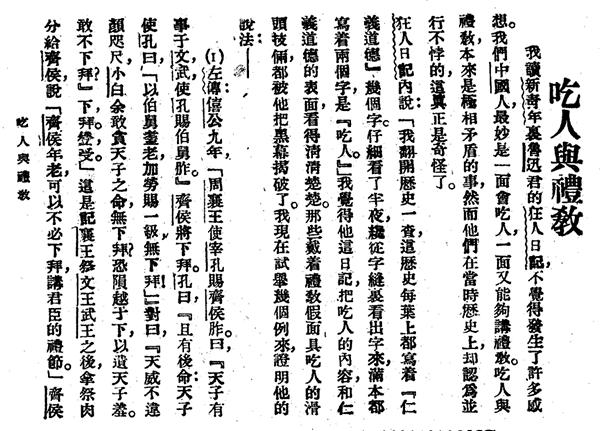 吃人與禮教
我讀新青年裏魯迅君的狂人日記,不覺得發生了許多感
想。我們中國人,最妙是一面會吃人,一面又能夠講禮教。吃人與
禮教,本來是極相矛盾的事,然而他們在當時歷史上,却認爲並
行不悖的,這眞正是奇怪了。
狂人日記內說:「我翻開歷史一查,這歷史每葉上都寫着『仁
義道德』幾個字,仔細看了半夜,纔從字縫裏看出字來,滿本都
寫着兩個字,是『吃人。』」我覺得他這日記,把吃人的內容,和仁
義道德的表面,看得清清楚楚。那些戴着禮教假面具吃人的滑
頭伎倆,都被他把黑幕揭破了。我現在試舉幾個例來證明他的
說法:——
(1)左傳僖公九年,「周襄王使宰孔賜齊侯胙。曰『天子有
事于文武,使孔賜伯舅胙。』齊侯將下拜,孔曰:『且有後命,天子
使孔曰:「以伯舅耋老,加勞賜一級,無下拜!」』對曰:『天威不違
顏咫尺,小白余敢貪天子之命,無下拜?恐隕越于下,以遺天子羞。
敢不下拜?』下,拜;登,受。」這是記襄王祭文王武王之後,拿祭肉
分給齊侯,說「齊侯年老,可以不必下拜,講君臣的禮節。」齊侯
吃人與禮教